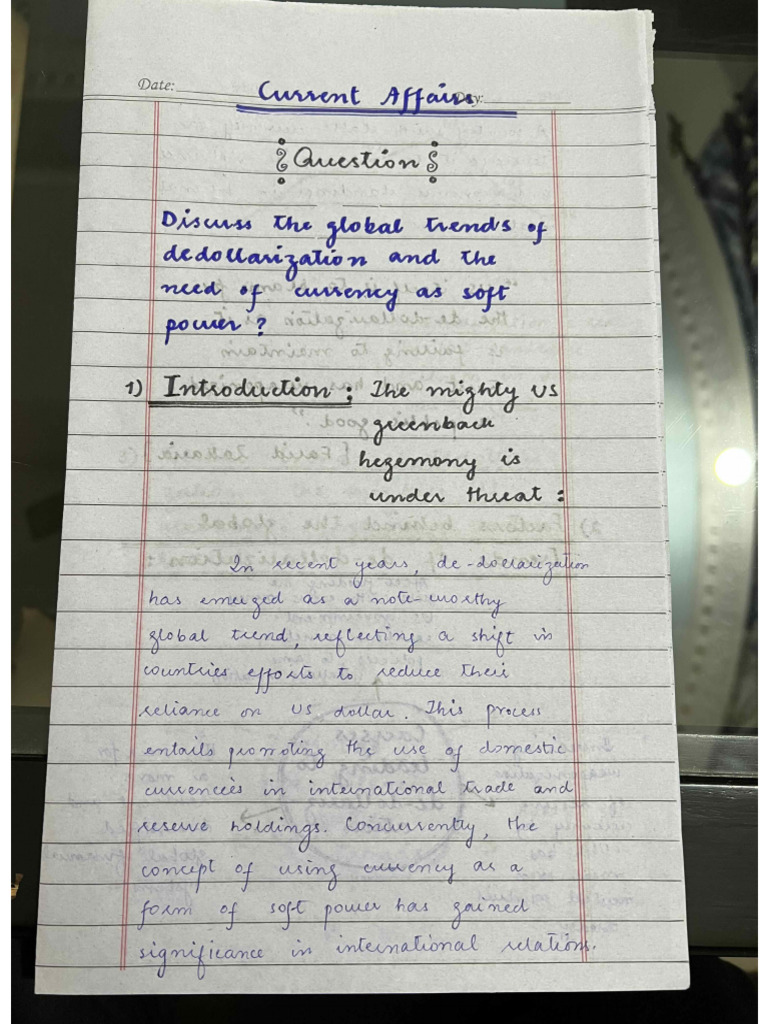 Date:
Current Affairs
Day:
Question
Discuss the global trends of
dedollarization and the
need of currency as soft
power?
1) Introduction: The mighty US
greenback
hegemony is
under threat:
In recent years, de-dollarization
has emerged as a note-worthy
global trend, reflecting a shift in
countries efforts to reduce their
reliance on US dollar. This process
entails promoting the use of domestic
currencies in international trade and
reserve holdings. Concurrently, the
concept of using currency as a
form of soft power has gained
significance in international relations.